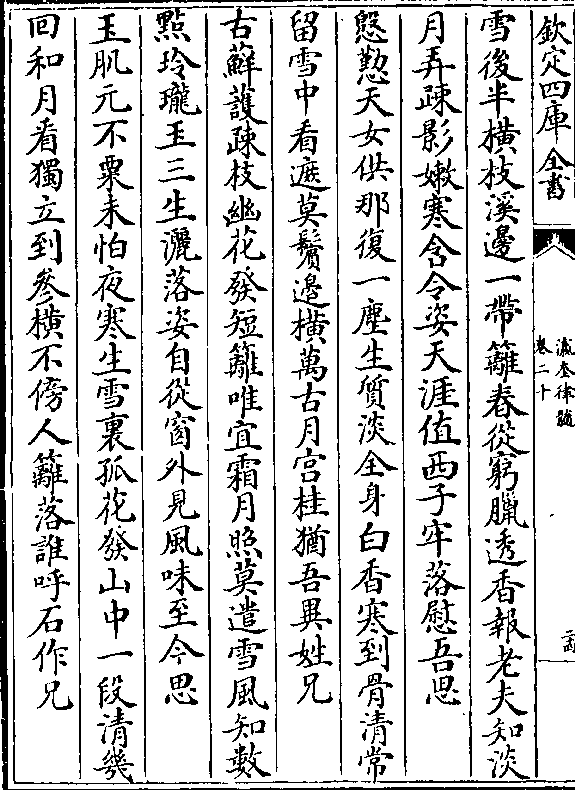 欽定四庫全書
瀛奎律髓
卷二十
雪後半橫枝溪邊一帶籬春從窮臘透香報老夫知淡
月弄疎影嫩寒含令姿天涯值西子牢落慰吾思
慇懃天女供那復一塵生質淡全身白香寒到骨清常
留雪中看遮莫鬢邊橫萬古月宮桂猶吾異姓兄
古蘚護疎枝幽花發短籬唯宜霜月照莫遣雪風知數
點玲瓏玉三生灑落姿自從窗外見風味至今思
玉肌元不粟未怕夜寒生雪裏孤花發山中一段清幾
回和月看獨立到參橫不傍人籬落誰呼石作兄